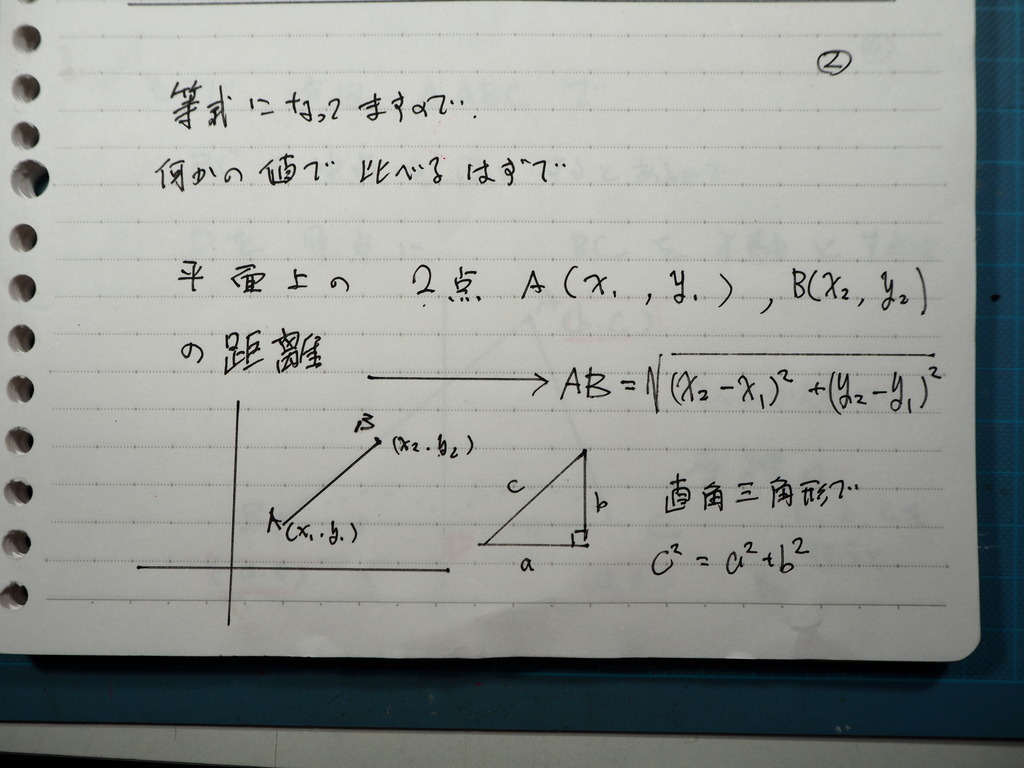 ②
等式になってますので.
何かの値で比べるはずで
平面上の 2点 A(x₁, y₁), B(x₂, y₂)
の距離
→ AB = √(x₂-x₁)² + (y₂-y₁)²
B (x₂, y₂)
A (x₁, y₁)
c
b
a
直角三角形で
c² = a² + b²